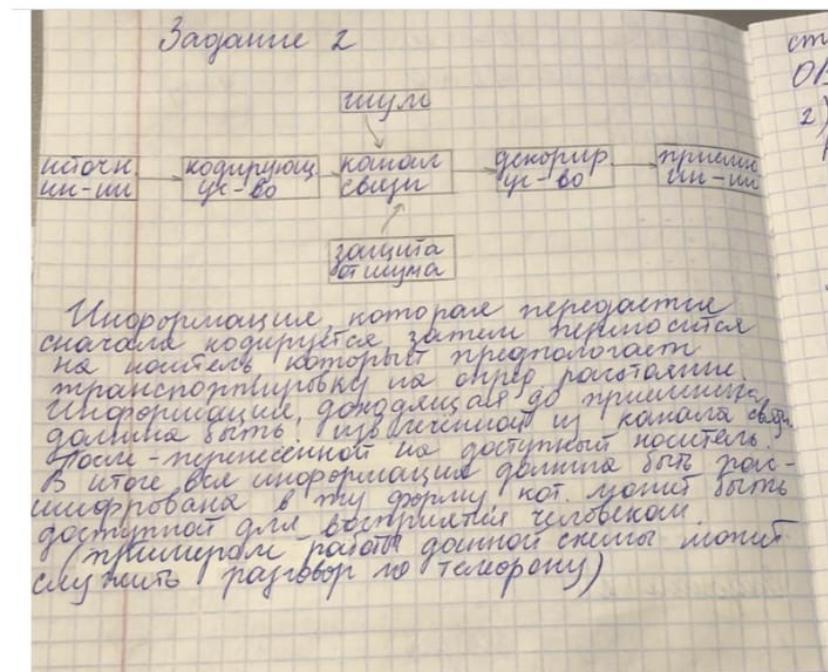 Задание 2
шум
источн. ин-ии
кодирующ. ус-во
канал связи
декодир ус-во
приемн ин-ии
защита от шума
Информация, которая передается
сначала кодируется, затем переносится
на носитель который предпологает
транспортировку на опред расстояние.
Информация, доходящая до приемника,
должна быть извлеченной из канала связи
после - перенесенной на доступный носитель.
В итоге вся информация должна быть рас-
шифрована в ту форму кот. может быть
доступной для восприятия человеком
(примером работы данной схемы может
служить разговор по телефону)
ст
2)